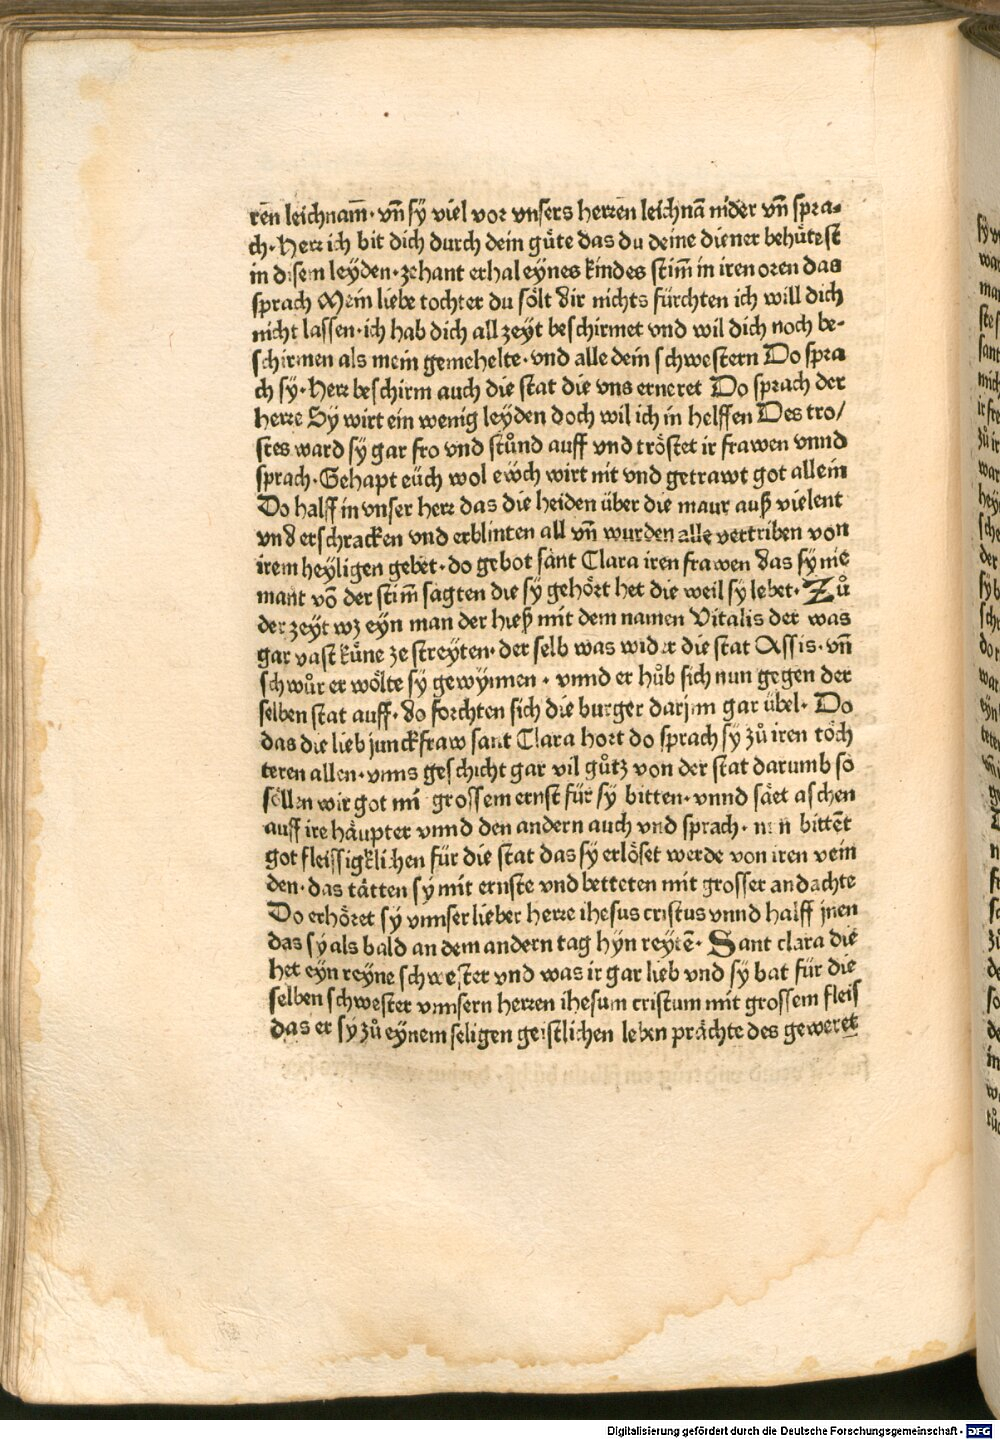 ren leichnam̄· vn̄ sÿ viel vor vnsers herren leichnā nider vn̄ spra-
ch· Herr ich bit dich durch dein gůte das du deine diener behůtest
in disem leÿden· zehant erhal eÿnes kindes stim̄ in iren oren das
sprach Mein liebe tochter du sölt dir nichts fürchten ich will dich
nicht lassen· ich hab dich all zeÿt beschirmet vnd wil dich noch be-
schirmen als mein gemehelte· vnd alle dein schwestern Do spra
ch sÿ· Herr beschirm auch die stat die vns erneret Do sprach der
herre Sÿ wirt ein wenig leÿden doch wil ich in helffen Des tro/
stes ward sÿ gar fro vnd stůnd auff vnd tröstet ir frawen vnnd
sprach· Gehapt eüch wol ewch wirt nit vnd getrawt got allein
Do halff in vnser herr das die heiden über die maur auß vielent
vnd erschracken vnd erblinten all vn̄ wurden alle vertriben von
irem heÿligen gebet· do gebot sant Clara iren frawen das sÿ nie
mant vō der stim̄ sagten die sÿ gehört het die weil sÿ lebet· Zů
der zeÿt wz eÿn man der hieß mit dem namen Vitalis der was
gar vast kůne ze streÿten· der selb was wider die stat Assis· vn̄
schwůr er wölte sÿ gewÿnnen · vnnd er hůb sich nun gegen der
selben stat auff· do forchten sich die burger darjnn gar übel· Do
das die lieb junckfraw sant Clara hort do sprach sÿ zů iren töch
teren allen· vnns geschicht gar vil gůtz von der stat darumb so
söllen wir got mi grossem ernst für sÿ bitten· vnnd säet aschen
auff ire häupter vnnd den andern auch vnd sprach· nun bittēt
got fleissigklichen für die stat das sÿ erlöset werde von iren vein
den· das tätten sÿ mit ernste vnd betteten mit grosser andachte
Do erhöret sÿ vnnser lieber herre ihesus cristus vnnd halff jnen
das sÿ als bald an dem andern tag hÿn reÿtē· Sant clara die
het eÿn reÿne schwester vnd was ir gar lieb vnd sÿ bat für die
selben schwester vnnsern herren ihesum cristum mit grossem fleis
das er sÿ zů eÿnem seligen geistlichen leben prächte des geweret
Digitalisierung gefördert durch die Deutsche Forschungsgemeinschaft - DFG